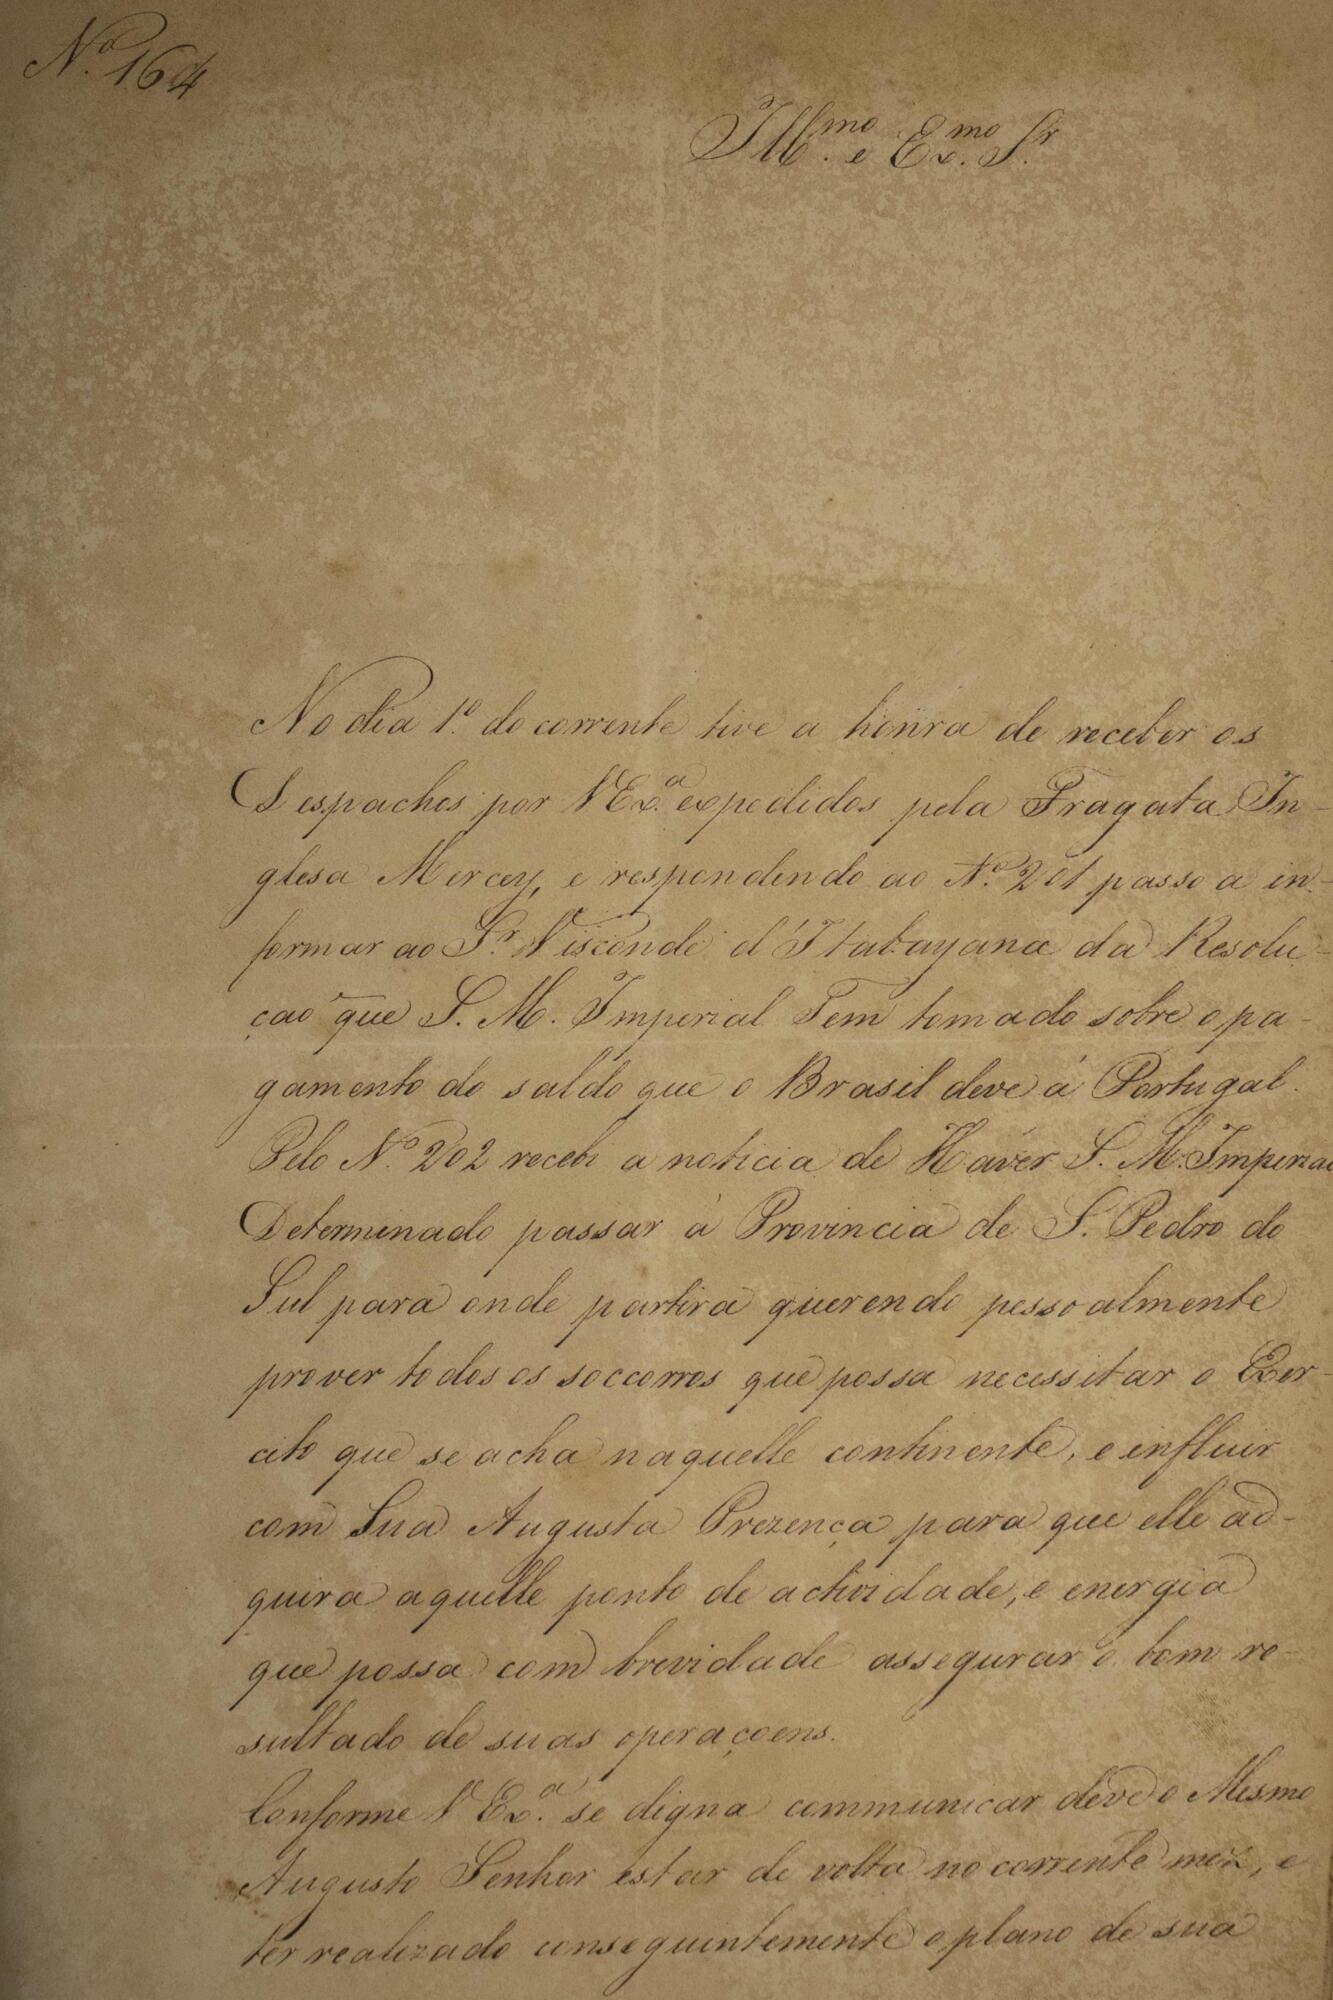 Nº 164
Illmo. e Exmo. Sr.
No dia 1º do corrente tive a honra de receber os
Despachos por V Exª expedidos pela Fragata In-
glesa Mercey, e respondendo ao Nº 201 passo a in-
formar ao Sr. Visconde d'Itabayana da Resolu-
çao que S. M. Imperial Tem tomado sobre o pa-
gamento do saldo que o Brasil deve á Portugal.
Pelo Nº 202 recebi a noticia de Haver S. M. Imperial
Determinado passar á Provincia de S. Pedro do
Sul para onde partirá querendo pessoalmente
prover todos os soccorros que possa necessitar o Exer-
cito que se acha naquelle continente, e influir
com Sua Augusta Prezença para que elle ad-
quira aquelle ponto de actividade, e energia
que possa com brevidade assegurar o bom re-
sultado de suas operaçoens.
Conforme V Exª se digna communicar deve o Mesmo
Augusto Senhor estar de volta no corrente mez, e
ter realizado conseguintemente o plano de sua